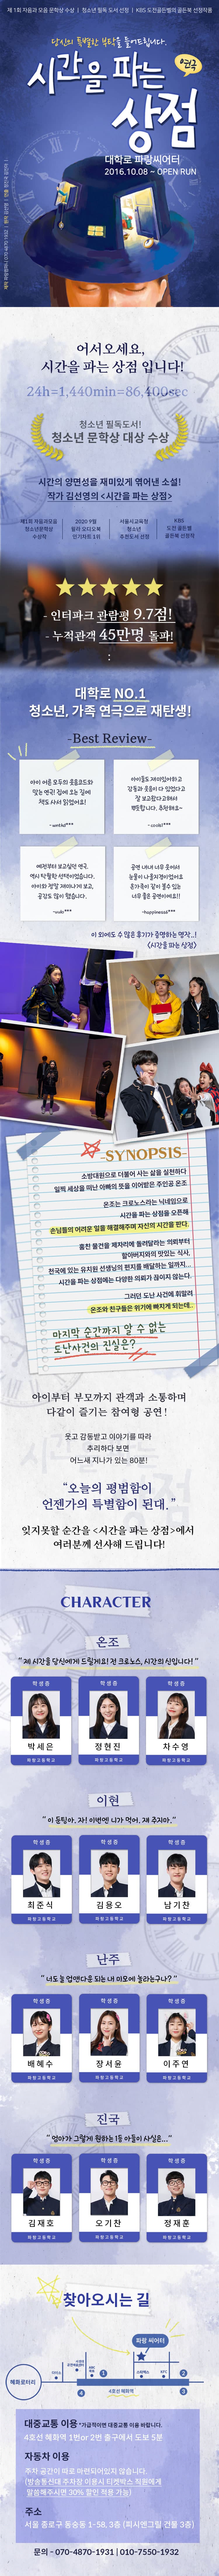 제 1회 자음과 모음 문학상 수상 | 청소년 필독 도서 선정 | KBS 도전골든벨의 골든북 선정작품
당신의 특별한 부탁을 들어드립니다.
시간을 파는
상점
연극
대학로 파랑씨어터
2016.10.08 ~ OPEN RUN
어서오세요,
시간을 파는 상점 입니다!
24h=1,440min=86,400sec
청소년 필독도서!
청소년 문학상 대상 수상
시간의 양면성을 재미있게 엮어낸 소설!
작가 김선영의 <시간을 파는 상점>
제1회 자음과모음
청소년문학상
수상작
2020 9월
윌라 오디오북
인기차트 1위
서울시교육청
청소년
추천도서 선정
KBS
도전 골든벨
골든북 선정작
- 인터파크 관람평 9.7점!
- 누적관객 45만명 돌파!
대학로 NO.1
청소년, 가족 연극으로 재탄생!
-Best Review-
아이 어른 모두의 웃음코드와
맞는 연극! 집에 오는 길에
책도 사서 읽었어요!
아이들도 재미있어하고
감동과 웃음이 다 있었다고
잘 보고왔다고해서
뿌듯합니다. 추천해요~
예전부터 보고싶던 연극,
역시 탁월한 선택이었습니다.
아이와 정말 재미나게 보고,
공감도 많이 했습니다.
공연 내내 너무 웃어서
눈물이 나올지경이었어요
온가족이 같이 볼수 있는
너무 좋은 공연이에요!!
~happiness6***
이 외에도 수 많은 후기가 증명하는 명작..!
<시간을 파는 상점>
-SYNOPSIS-
소방대원으로 더불어 사는 삶을 실천하다
일찍 세상을 떠난 아빠의 뜻을 이어받은 주인공 온조
온조는 크로노스라는 닉네임으로
시간을 파는 상점을 오픈해
손님들의 어려운 일을 해결해주며 자신의 시간을 판다.
훔친 물건을 제자리에 돌려달라는 의뢰부터
할아버지와의 맛있는 식사,
천국에 있는 유치원 선생님의 편지를 배달하는 일까지...
시간을 파는 상점에는 다양한 의뢰가 끊이지 않는다.
그러던 도난 사건에 휘말려
온조와 친구들은 위기에 빠지게 되는데..
마지막 순간까지 알 수 없는
도난사건의 진실은?
아이부터 부모까지 관객과 소통하며
다같이 즐기는 참여형 공연!
웃고 감동받고 이야기를 따라
추리하다 보면
어느새 지나가 있는 80분!
“오늘의 평범함이
언젠가의 특별함이 된대.”
잊지못할 순간을 <시간을 파는 상점>에서
여러분께 선사해 드립니다!
CHARACTER
온조
“제 시간을 당신에게 드릴게요! 전 크로노스, 시간의 신입니다!”
학생증 학생증 학생증
박세은 정현진 차수영
파랑고등학교 파랑고등학교 파랑고등학교
이현
학생증 학생증 학생증
최준식 김용오 남기찬
파랑고등학교 파랑고등학교 파랑고등학교
난주
학생증 학생증 학생증
배혜수 장서윤 이주연
파랑고등학교 파랑고등학교 파랑고등학교
진국
“엄마가 그렇게 원하는 1등 아들이 사실은...”
학생증 학생증 학생증
김재호 오기찬 정재훈
파랑고등학교 파랑고등학교 파랑고등학교
찾아오시는 길
파랑 씨어터
혜화로터리
스타벅스
KFC
1
2
4
3
4호선 혜화역
대중교통 이용 *가급적이면 대중교통 이용 바랍니다.
4호선 혜화역 1번or 2번 출구에서 도보 5분
자동차 이용
주차 공간이 따로 마련되어있지 않습니다.
(방송통신대 주차장 이용시 티켓박스 직원에게
말씀해주시면 30% 할인 적용 가능)
주소
서울 종로구 동숭동 1-58, 3층 (피시앤그릴 건물 3층)
문의 - 070-4870-1931 | 010-7550-1932